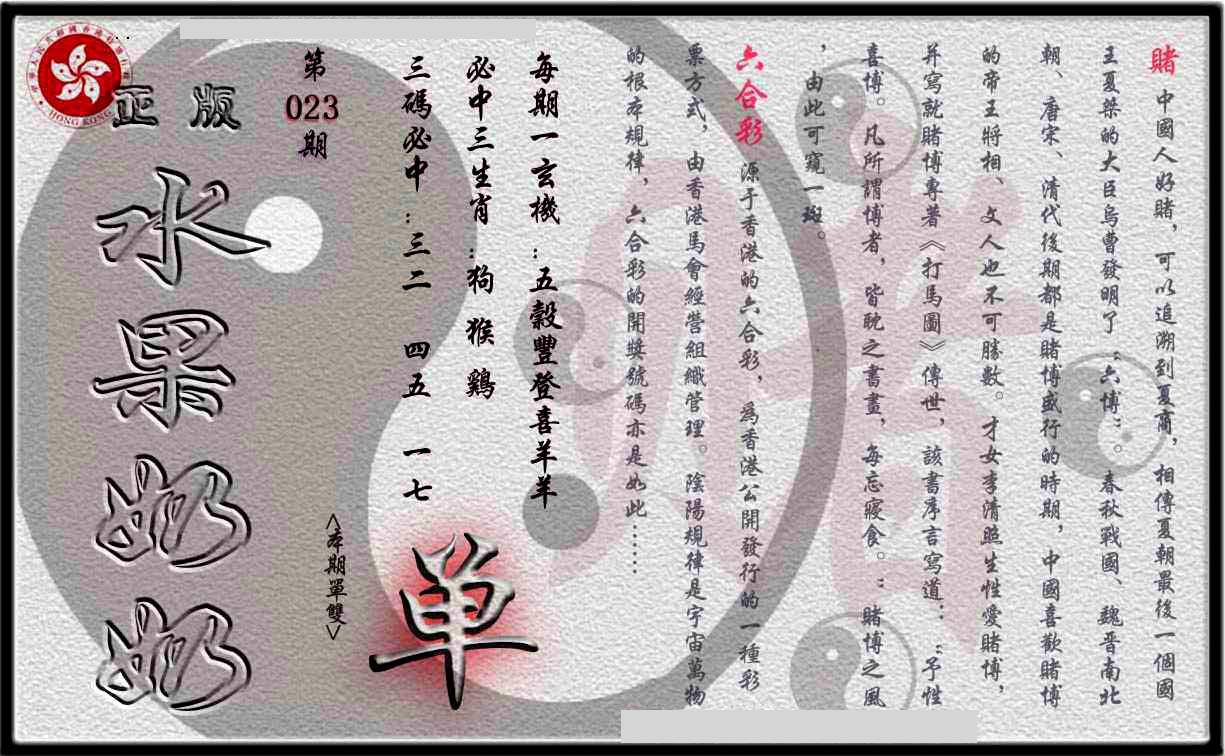 賭 中國人好賭，可以追溯到夏商，相傳夏朝最後一個國
王夏桀的大臣烏曹發明了“六博”。春秋戰國、魏晋南北
朝、唐宋、清代後期都是賭博盛行的時期，中國喜歡賭博
的帝王將相、文人也不可勝數。才女李清照生性愛賭博，
并寫就賭博專著《打馬圖》傳世，該書序言寫道：“予性
喜博。凡所謂博者，皆耽之書畫，每忘寢食。”賭博之風
，由此可窺一斑。
六合彩 源于香港的六合彩，為香港公開發行的一種彩
票方式，由香港馬會經營組織管理。陰陽規律是宇宙萬物
的根本規律，六合彩的開獎號碼亦是如此……
每期一玄機：五穀豐登喜羊羊
必中三生肖：狗 猴 鷄
三碼必中：三二 四五 一七
单
<本期單雙>
第023期
正版
水果奶奶
HONG KONG